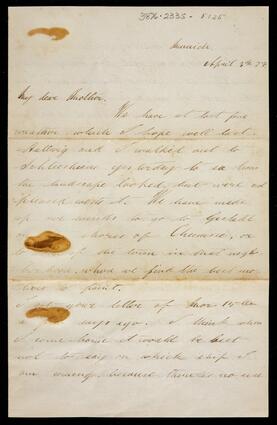 Munich
April 5th 78
My dear Mother.
We have at last fine
weather which I hope will last.
and I walked out to
Schleissheim yesterday to see how
the landscape looked, but were not
pleased with it. We have made
up our minds to go to
shores of Chiemsee, or
to some town in that neigh-
borhood, where we find the best mo-
tives to paint.
I got your letter of Mar 15th
a days ago. I think when
I come home it would be best
not to say on which ship I
am coming, because there is no use